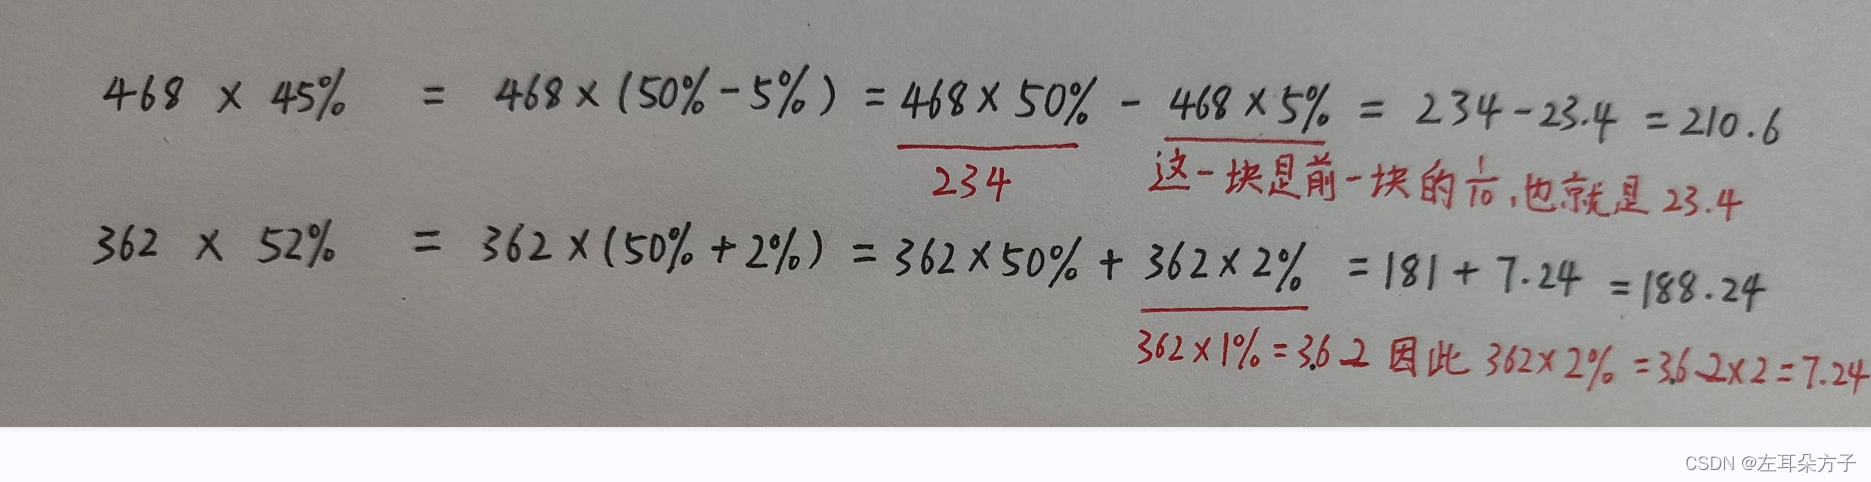 468 × 45% = 468×(50%-5%) = 468×50% - 468×5% = 234-23.4 = 210.6
234 这一块是前一块的1/10,也就是 23.4
362 × 52% = 362×(50%+2%) = 362×50% + 362×2% = 181+7.24 = 188.24
362×1%=3.62 因此 362×2% =3.62×2=7.24
CSDN @左耳朵方子